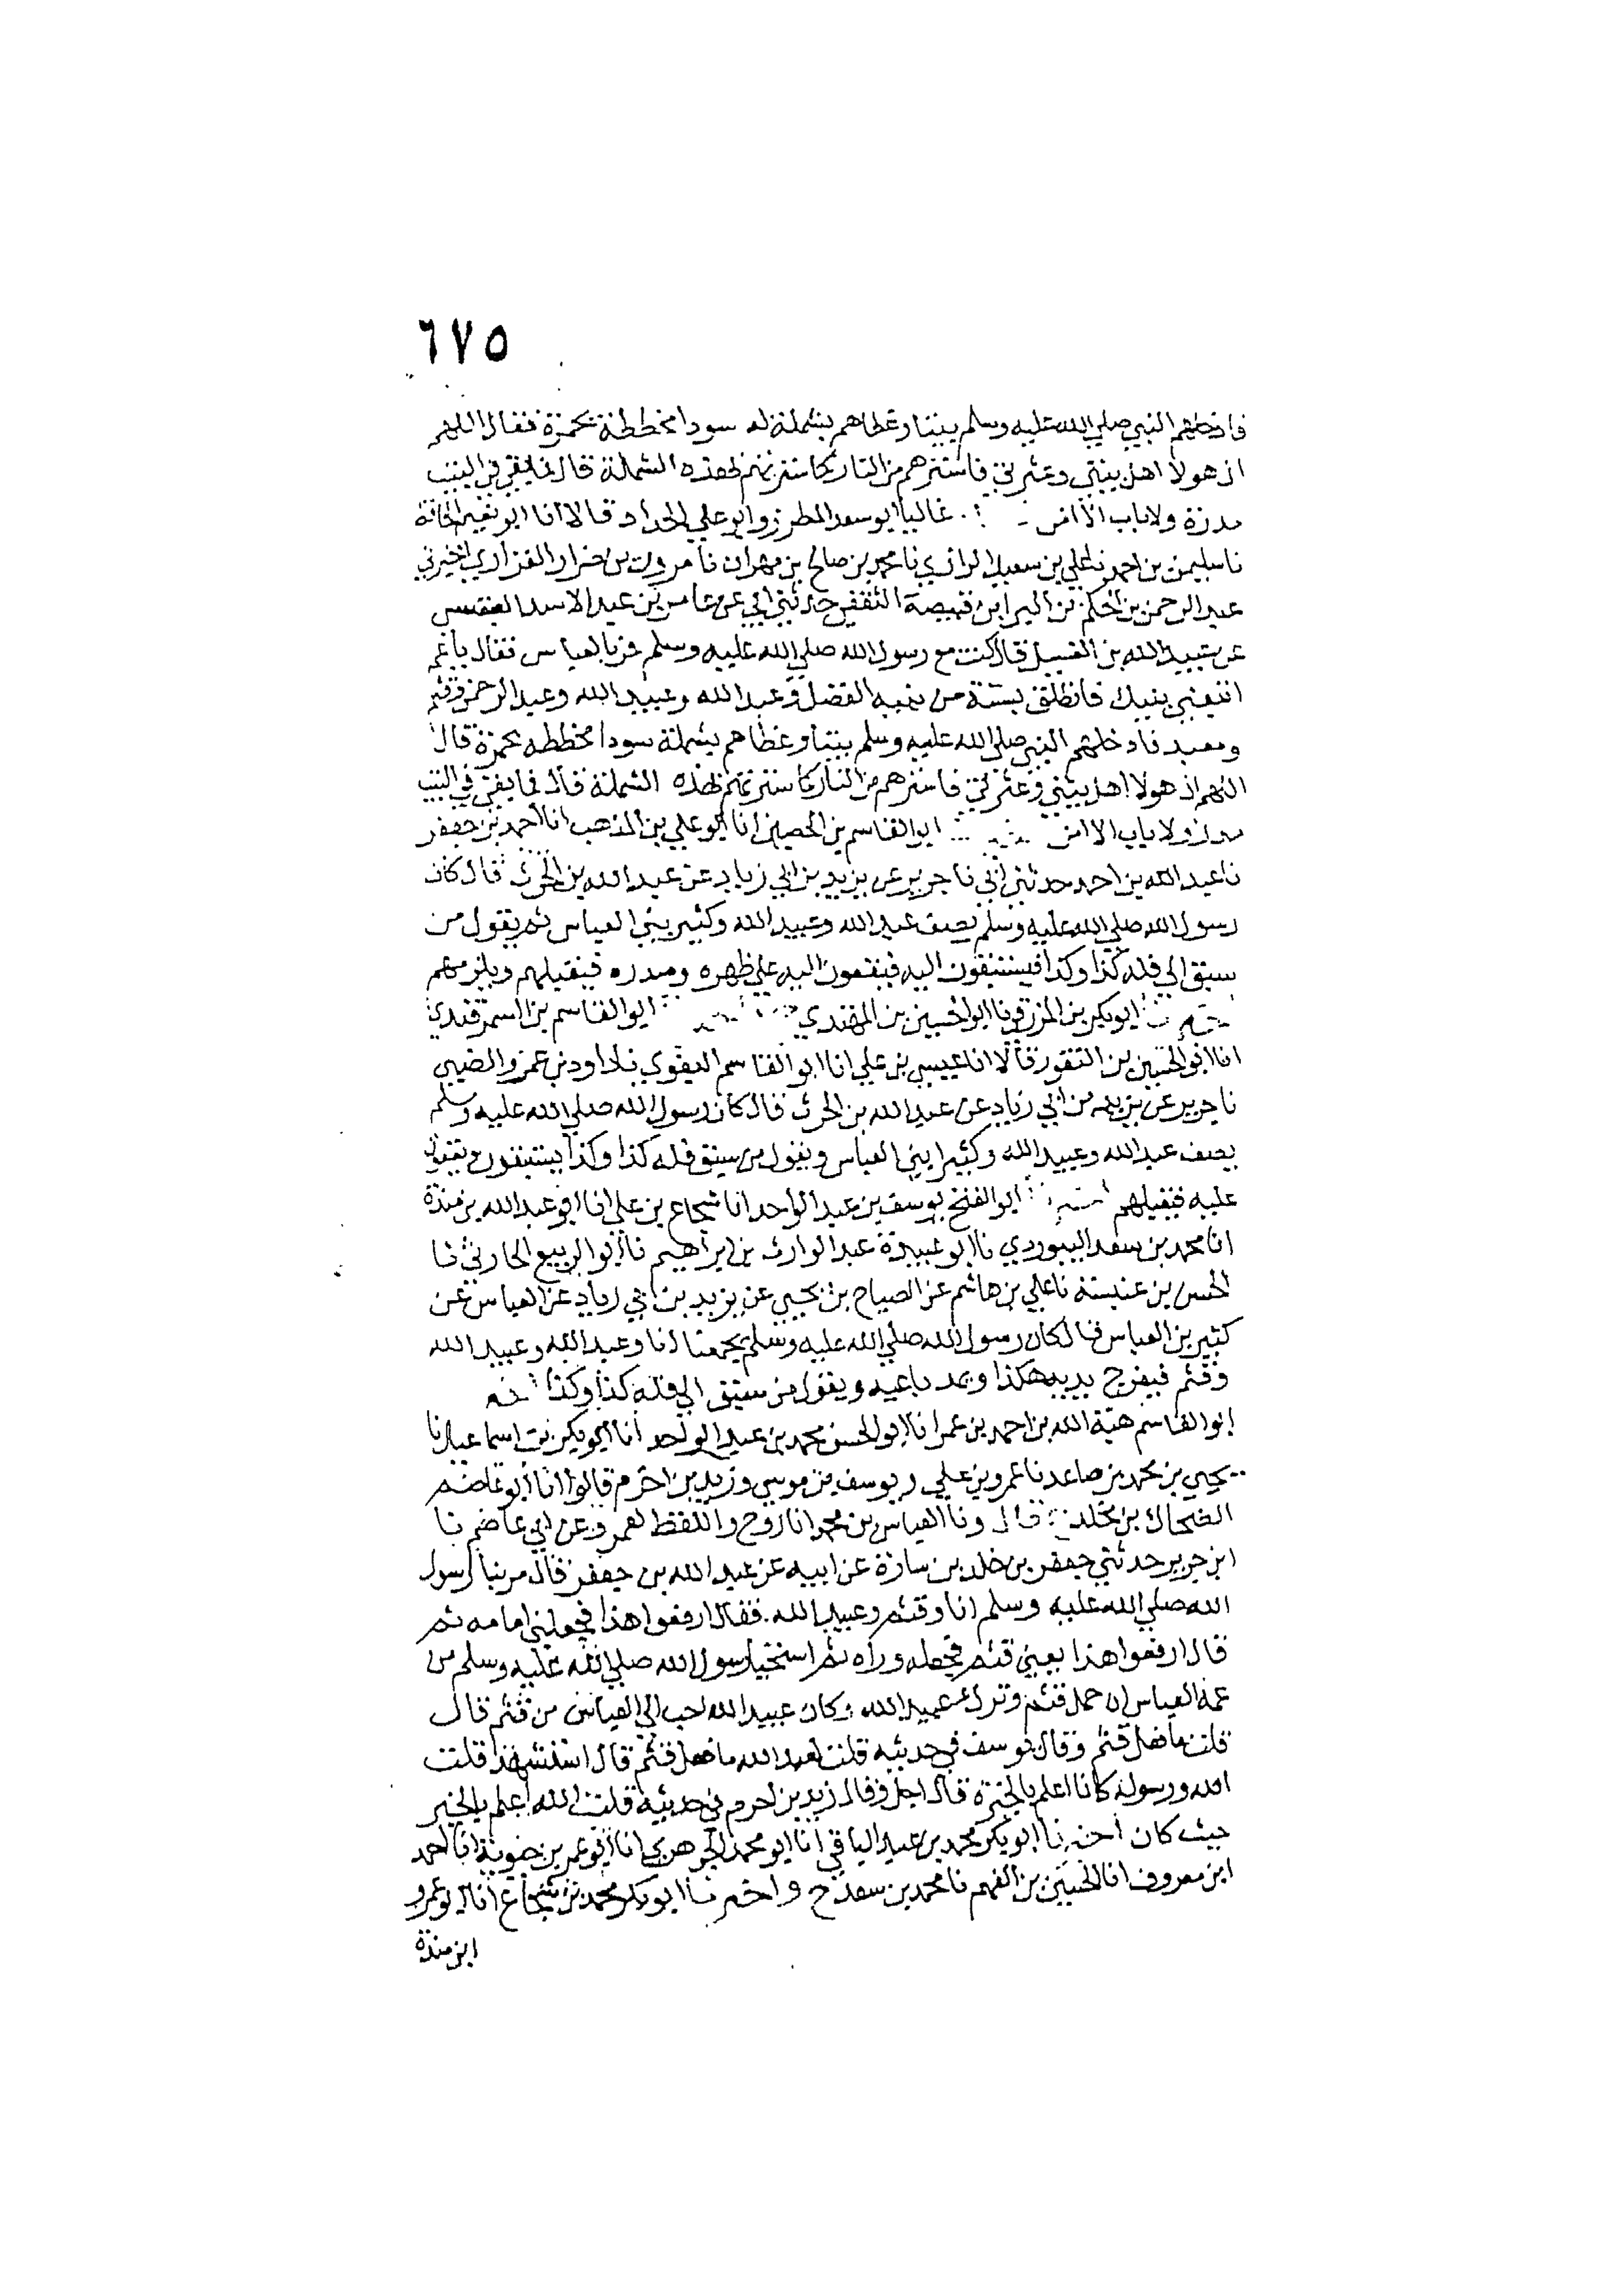 ٦٧٥
فادخلهم النبي صلي الله عليه وسلم بيتا وغطاهم بشملة له سودا مخططة بحمرة فقال اللهم
ان هولا اهل بيتي وعترتي فاسترهم من النار كما سترتهم بهذه الشملة قال فما بقي في البيت
مدرة ولا باب الا امن غالبا ابو سعد المطرز وابو علي الحداد قالا انا ابو نعيم الحافظ
نا سليمن بن احمد نا علي بن سعيد الرازي نا محمد بن صالح بن مهران نا مروان بن ضرار الفزاري اخبرني
عبد الرحمن بن الحكم بن البرا بن قبيصة الثقفي حدثني ابي عن عامر بن عبد الاسد العبقسي
عن عبيد الله بن الغسيل قال كنت مع رسول الله صلي الله عليه وسلم فمر بالعباس فقال يا عم
اتبعني ببنيك فانطلق بستة من بنيه الفضل وعبد الله وعبيد الله وعبد الرحمن وقثم
ومعبد فادخلهم النبي صلي الله عليه وسلم بيتا وغطاهم بشملة سودا مخططه بحمرة قال
اللهم ان هولا اهل بيتي وعترتي فاسترهم من النار كما سترتهم بهذه الشملة قال فما بقي في البيت
مدر ولا باب الا امن ابو القاسم بن الحصين انا ابو علي بن المذهب انا احمد بن جعفر
نا عبد الله بن احمد حدثني ابي نا جرير عن يزيد بن ابي زياد عن عبد الله بن الحرث قال كان
رسول الله صلي الله عليه وسلم يصف عبد الله وعبيد الله وكثير بني العباس ثم يقول من
سبق الي فله كذا وكذا فيستبقون اليه فيقعون اليه علي ظهره وصدره فيقبلهم ويلزمهم
ابو بكر بن المزرفي نا ابو الحسين بن المهتدي ابو القاسم بن السمرقندي
انا ابو الحسين بن النقور قالا انا عيسي بن علي انا ابو القاسم البغوي نا داود بن عمرو الضبي
نا جرير عن يزيد بن ابي زياد عن عبد الله بن الحرث قال كان رسول الله صلي الله عليه وسلم
يصف عبد الله وعبيد الله وكثيرا بني العباس ويقول من سبق فله كذا وكذا يستبقون يقعون
عليه فيقبلهم ابو الفتح يوسف بن عبد الواحد انا شجاع بن علي انا ابو عبد الله بن مندة
انا محمد بن سعد البيوردي نا ابو عبيدة عبد الوارث بن ابراهيم نا ابو الربيع الحارثي نا
الحسن بن عنبسة نا علي بن هاشم عن الصباح بن يحيي عن يزيد بن ابي زياد عن العباس عن
كثير بن العباس قال كان رسول الله صلي الله عليه وسلم يجمعنا انا وعبد الله وعبيد الله
وقثم فيفرج يديه هكذا ويمد باعيه ويقول من سبق الي فله كذا وكذا
ابو القاسم هبة الله بن احمد بن عمر انا ابو الحسن محمد بن عبد الواحد انا ابو بكر بن اسماعيل نا
يحيي بن محمد بن صاعد نا عمرو بن علي ويوسف بن موسي وزيد بن اخزم قالوا انا ابو عاصم
الضحاك بن مخلد قال ونا العباس بن محمد انا روح واللفظ لعمرو عن ابي عاصم نا
ابن جرير حدثني جعفر بن خلد بن سارة عن ابيه عن عبد الله بن جعفر قال مر بنا رسول
الله صلي الله عليه وسلم انا وقثم وعبيد الله. فقال ارفعوا هذا فجعلني امامه ثم
قال ارفعوا هذا يعني قثم فجعله وراه ثم استحيا رسول الله صلي الله عليه وسلم من
عمه العباس ان حمل قثم وترك عبيد الله وكان عبيد الله احب الي العباس من قثم قال
قلت ما فعل قثم وقال يوسف في حديثه قلت لعبد الله ما فعل قثم قال استشهد قلت
الله ورسوله كانا اعلم بالخيرة قال اجل وقال زيد بن اخزم في حديثه قلت الله اعلم بالخير
حيث كان اخبرنا ابو بكر محمد بن عبد الباقي انا ابو محمد الجوهري انا ابو عمر بن حيوية انا احمد
ابن معروف انا الحسين بن الفهم نا محمد بن سعد ح واخبرنا ابو بكر محمد بن شجاع انا ابو عمرو
ابن مندة